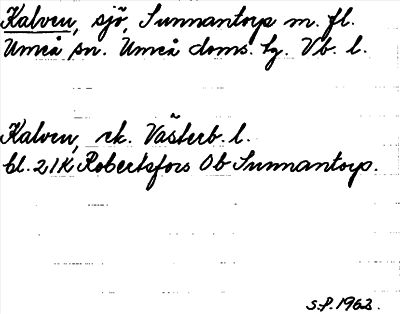 Kalven, sjö, Sunnantorp m. fl.
Umeå sn. Umeå doms. hg. Vb. l.
Kalven, ek. Västerb. l.
bl. 21K Robertsfors Ob Sunnantorp.
S.P. 1963.